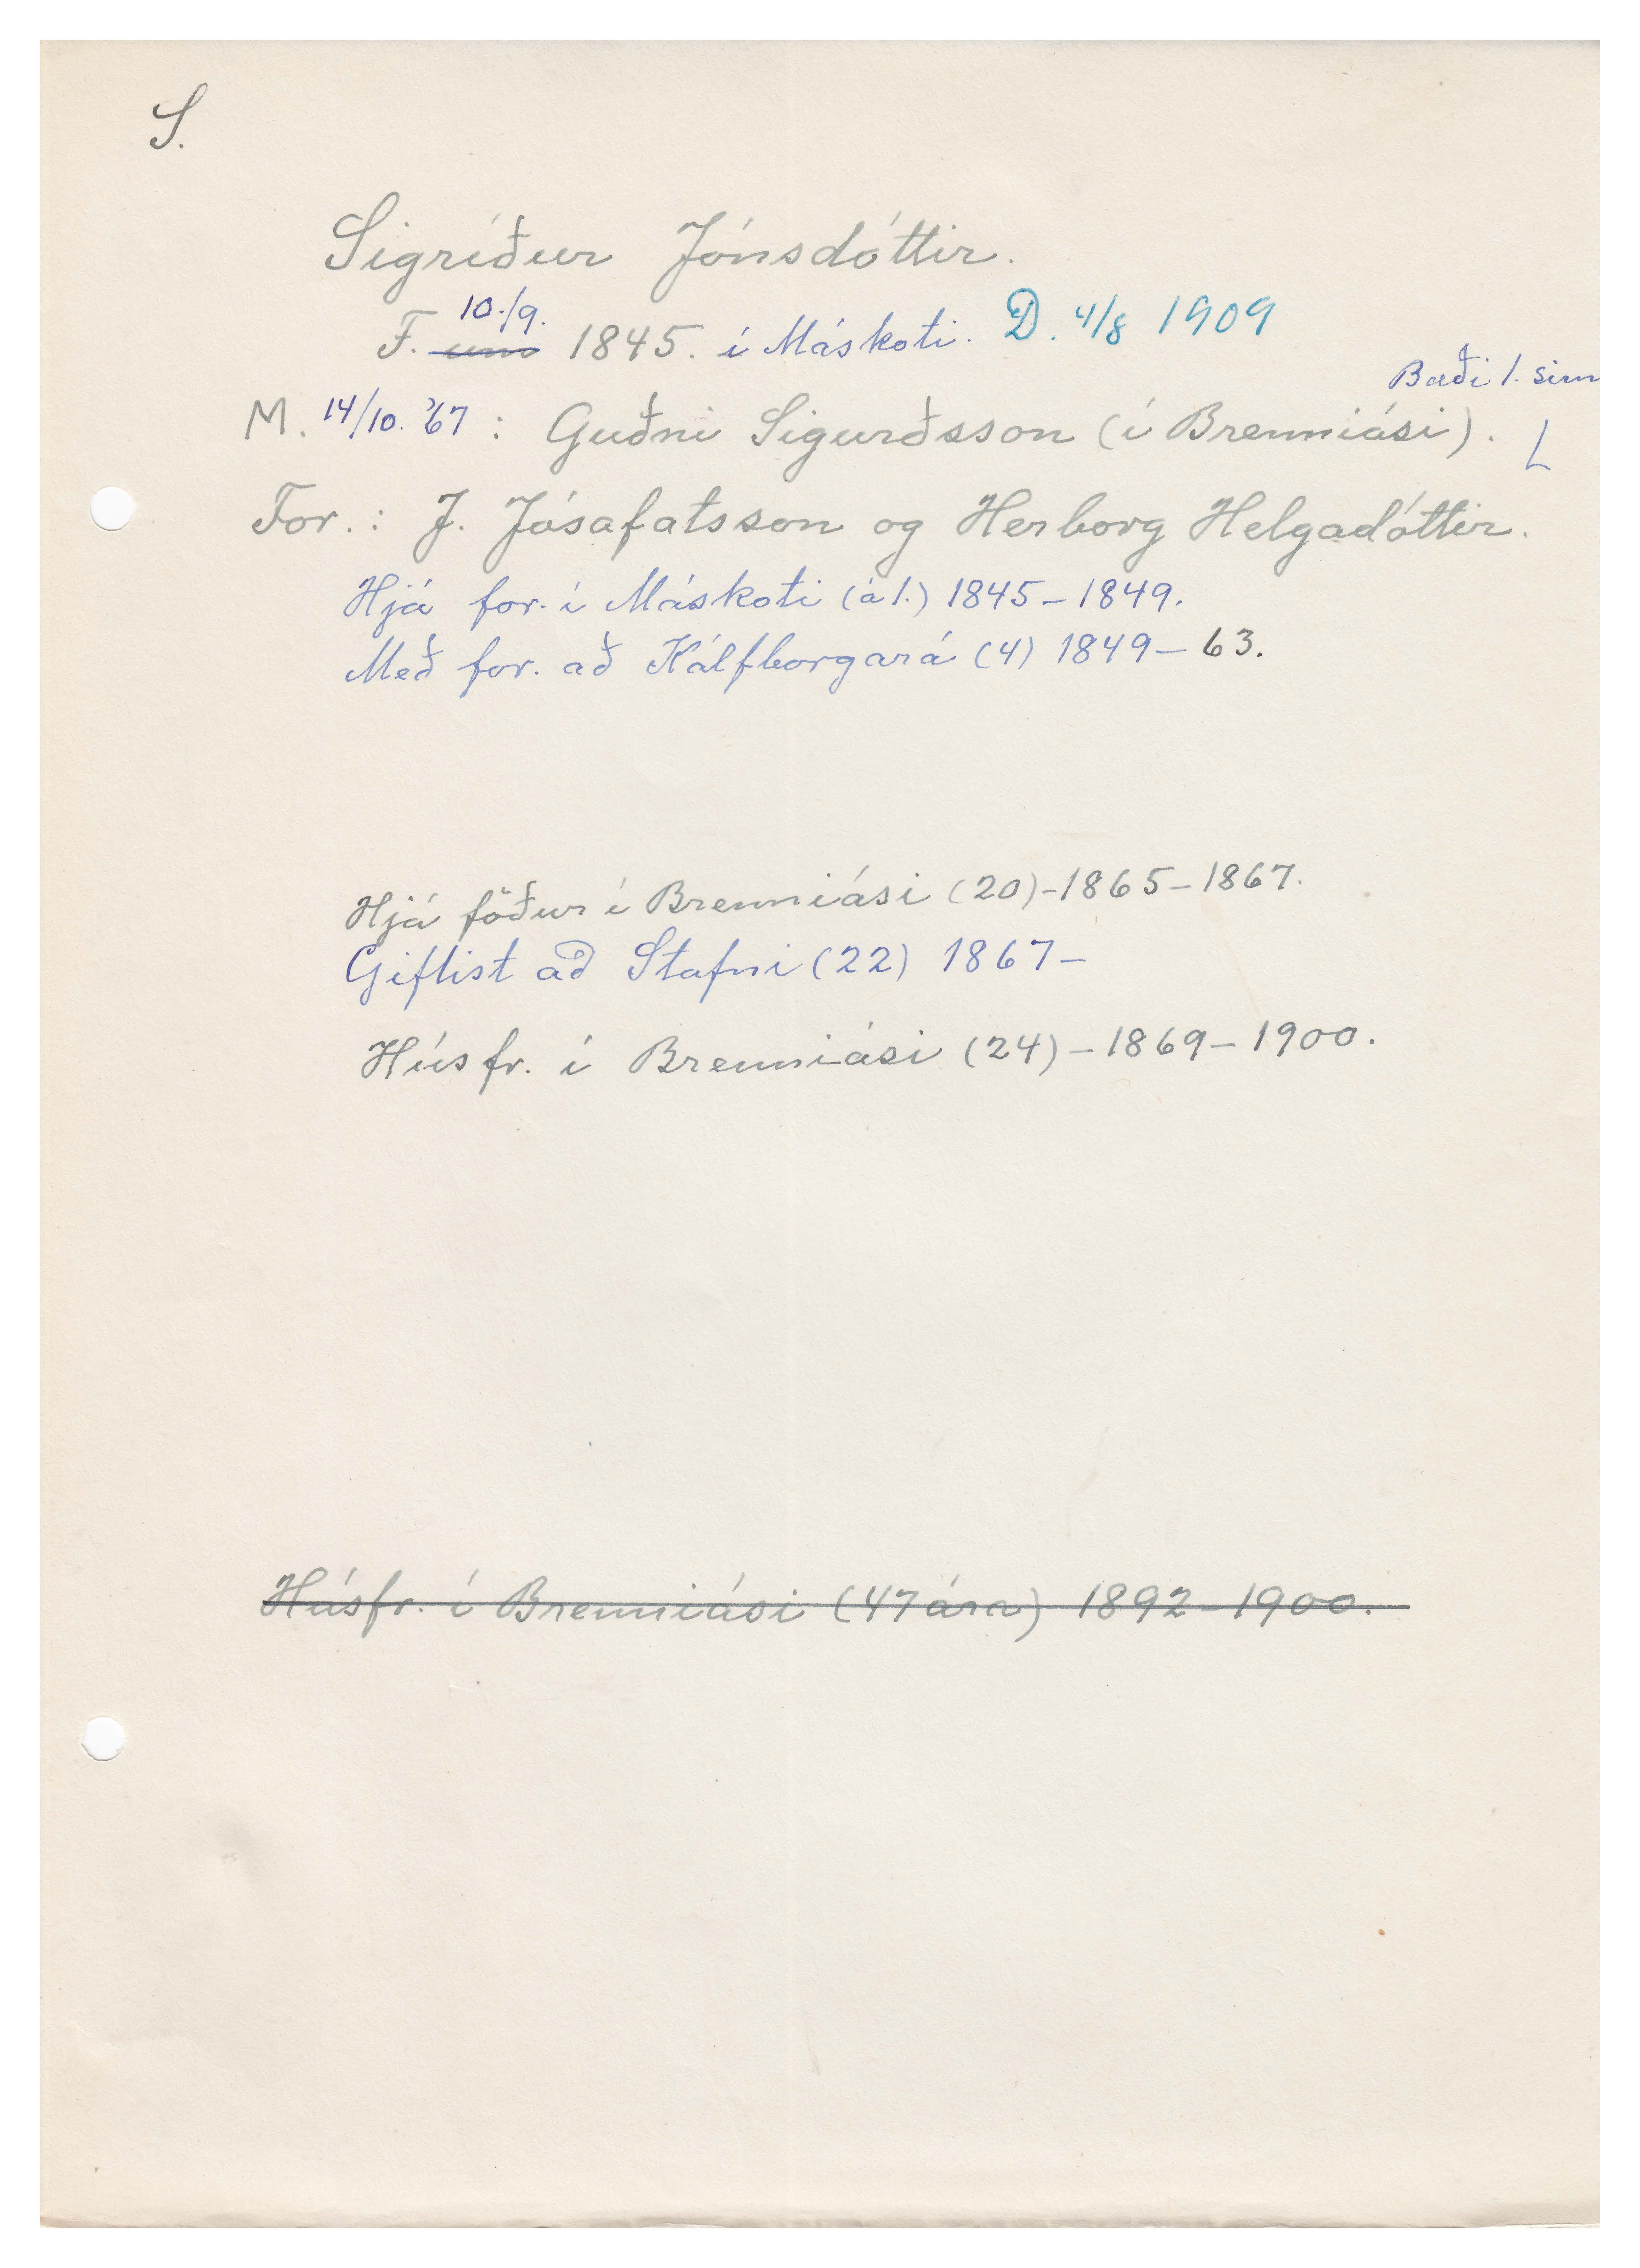 S.
Sigríður Jónsdóttir.
10./9.
F. um 1845. í Máskoti. D. 4/8 1909
Bæði 1. sinn
M. 14/10. '67 : Guðni Sigurðsson (í Brenniási).
For. : J. Jósafatsson og Herborg Helgadóttir.
Hjá for. í Máskoti (á 1.) 1845-1849.
Með for. að Kálfborgará (4) 1849-63.
Hjá föður í Brenniási (20)-1865-1867.
Giftist að Stafni (22) 1867-
Húsfr. í Brenniási (24)-1869-1900.
Húsfr. í Brenniási (47 ára) 1892-1900.